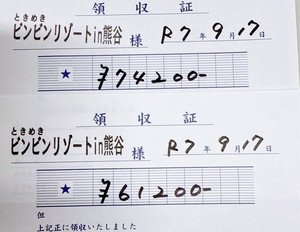 領収証
ときめき
ピンピンリゾートin熊谷 様 R7年9月17日
★ ¥74200-
領収証
ときめき
ピンピンリゾートin熊谷 様 R7年9月17日
★ ¥61200-
但
上記正に領収いたしました